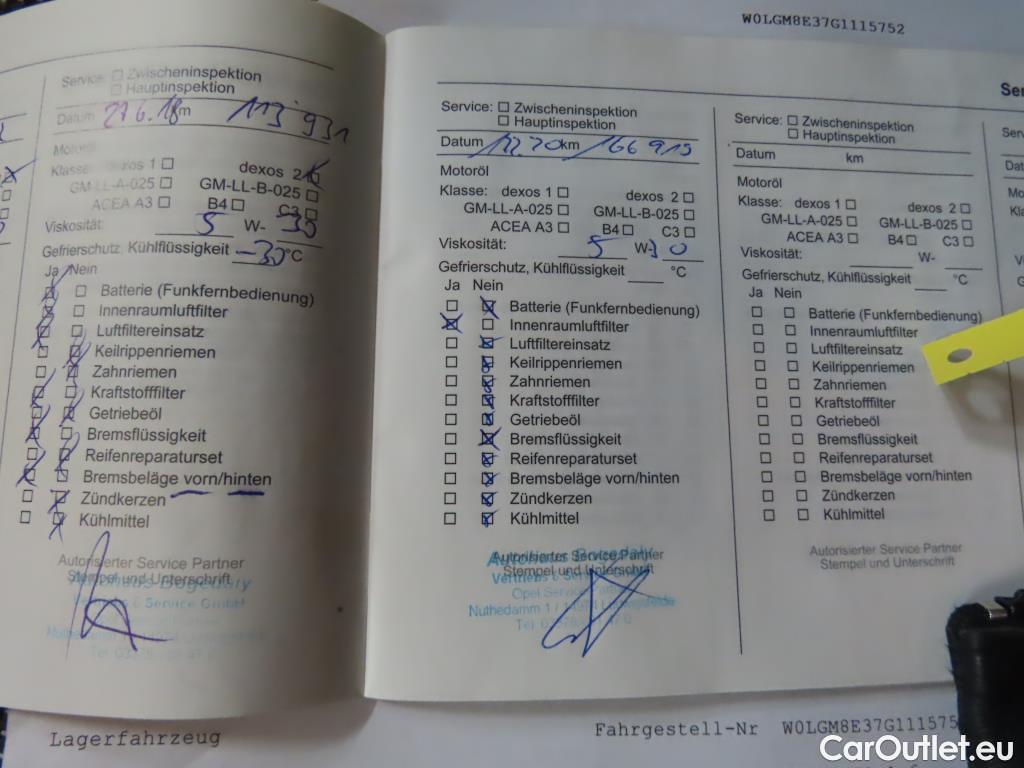 W0LGM8E37G1115752
Service: Zwischeninspektion
Hauptinspektion
Datum 27.6.18 km 113 931
Motoröl
Klasse: dexos 1 dexos 2
GM-LL-A-025 GM-LL-B-025
ACEA A3 B4 C3
Viskosität: 5 W- 30
Gefrierschutz, Kühlflüssigkeit -30 °C
Ja Nein
Batterie (Funkfernbedienung)
Innenraumluftfilter
Luftfiltereinsatz
Keilrippenriemen
Zahnriemen
Kraftstofffilter
Getriebeöl
Bremsflüssigkeit
Reifenreparaturset
Bremsbeläge vorn/hinten
Zündkerzen
Kühlmittel
Autorisierter Service Partner
Stempel und Unterschrift
Service GmbH
Service: Zwischeninspektion
Hauptinspektion
Datum 12.20 km 166 915
Motoröl
Klasse: dexos 1 dexos 2
GM-LL-A-025 GM-LL-B-025
ACEA A3 B4 C3
Viskosität: 5 W- 30
Gefrierschutz, Kühlflüssigkeit °C
Ja Nein
Batterie (Funkfernbedienung)
Innenraumluftfilter
Luftfiltereinsatz
Keilrippenriemen
Zahnriemen
Kraftstofffilter
Getriebeöl
Bremsflüssigkeit
Reifenreparaturset
Bremsbeläge vorn/hinten
Zündkerzen
Kühlmittel
Autorisierter Service Partner
Stempel und Unterschrift
Autohaus
Vertriebs & Service
Opel Service
Nuthedamm 1 /
Ser
Service: Zwischeninspektion
Hauptinspektion
Datum km
Motoröl
Klasse: dexos 1 dexos 2
GM-LL-A-025 GM-LL-B-025
ACEA A3 B4 C3
Viskosität: W-
Gefrierschutz, Kühlflüssigkeit °C
Ja Nein
Batterie (Funkfernbedienung)
Innenraumluftfilter
Luftfiltereinsatz
Keilrippenriemen
Zahnriemen
Kraftstofffilter
Getriebeöl
Bremsflüssigkeit
Reifenreparaturset
Bremsbeläge vorn/hinten
Zündkerzen
Kühlmittel
Autorisierter Service Partner
Stempel und Unterschrift
Lagerfahrzeug
Fahrgestell-Nr W0LGM8E37G111575
CarOutlet.eu